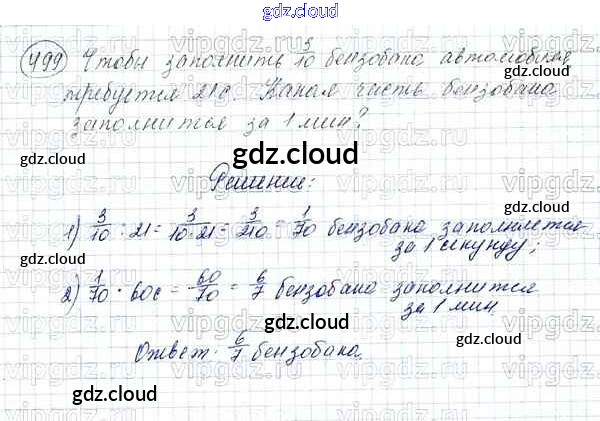 gdz.cloud
499 Чтобы заполнить 3/10 бензобака автомобиля
требуется 21с. Какая часть бензобака
заполнится за 1 мин?
gdz.cloud
Решение:
1) 3/10 : 21 = 3/10·21 = 3/210 = 1/70 бензобака заполняется
за 1 секунду;
2) 1/70 · 60с = 60/70 = 6/7 бензобака заполнится
за 1 мин.
Ответ: 6/7 бензобака.
gdz.cloud